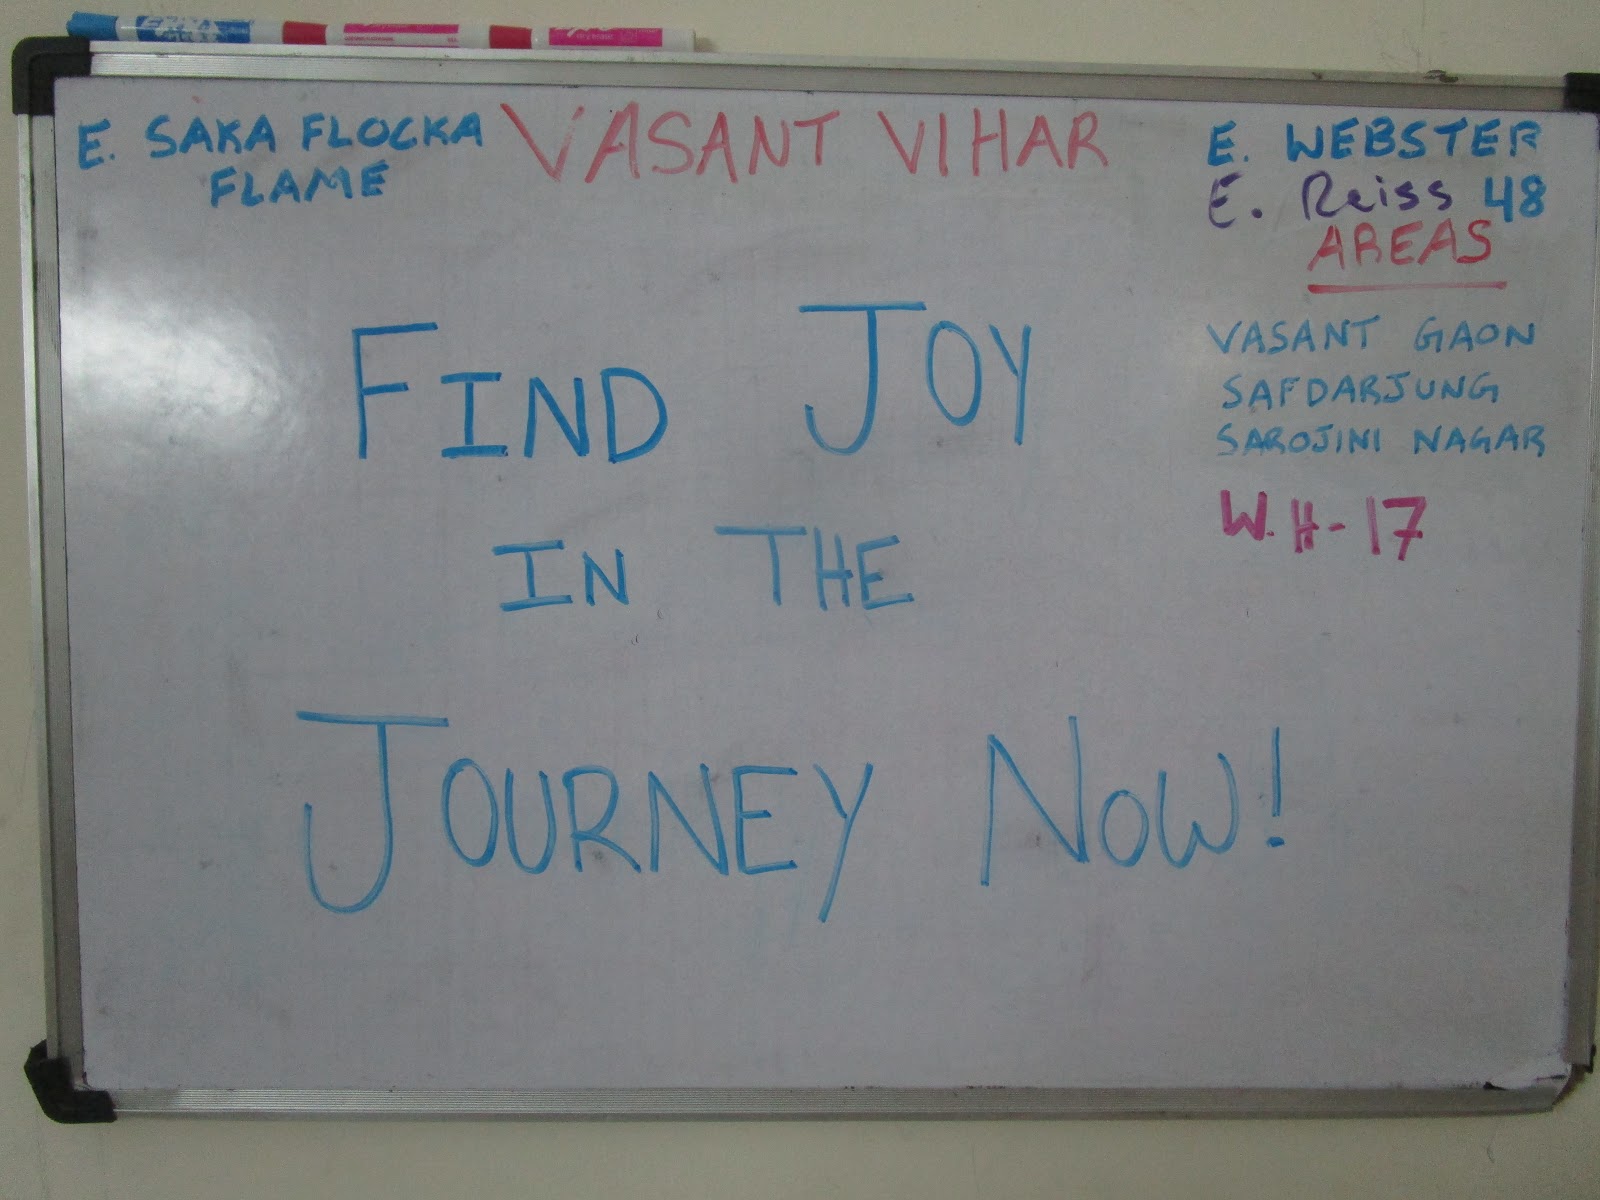 E. SAKA FLOCKA
FLAME
VASANT VIHAR
E. WEBSTER
E. Reiss 48
AREAS
VASANT GAON
SAFDARJUNG
SAROJINI NAGAR
W.H-17
FIND JOY
IN THE
JOURNEY NOW!